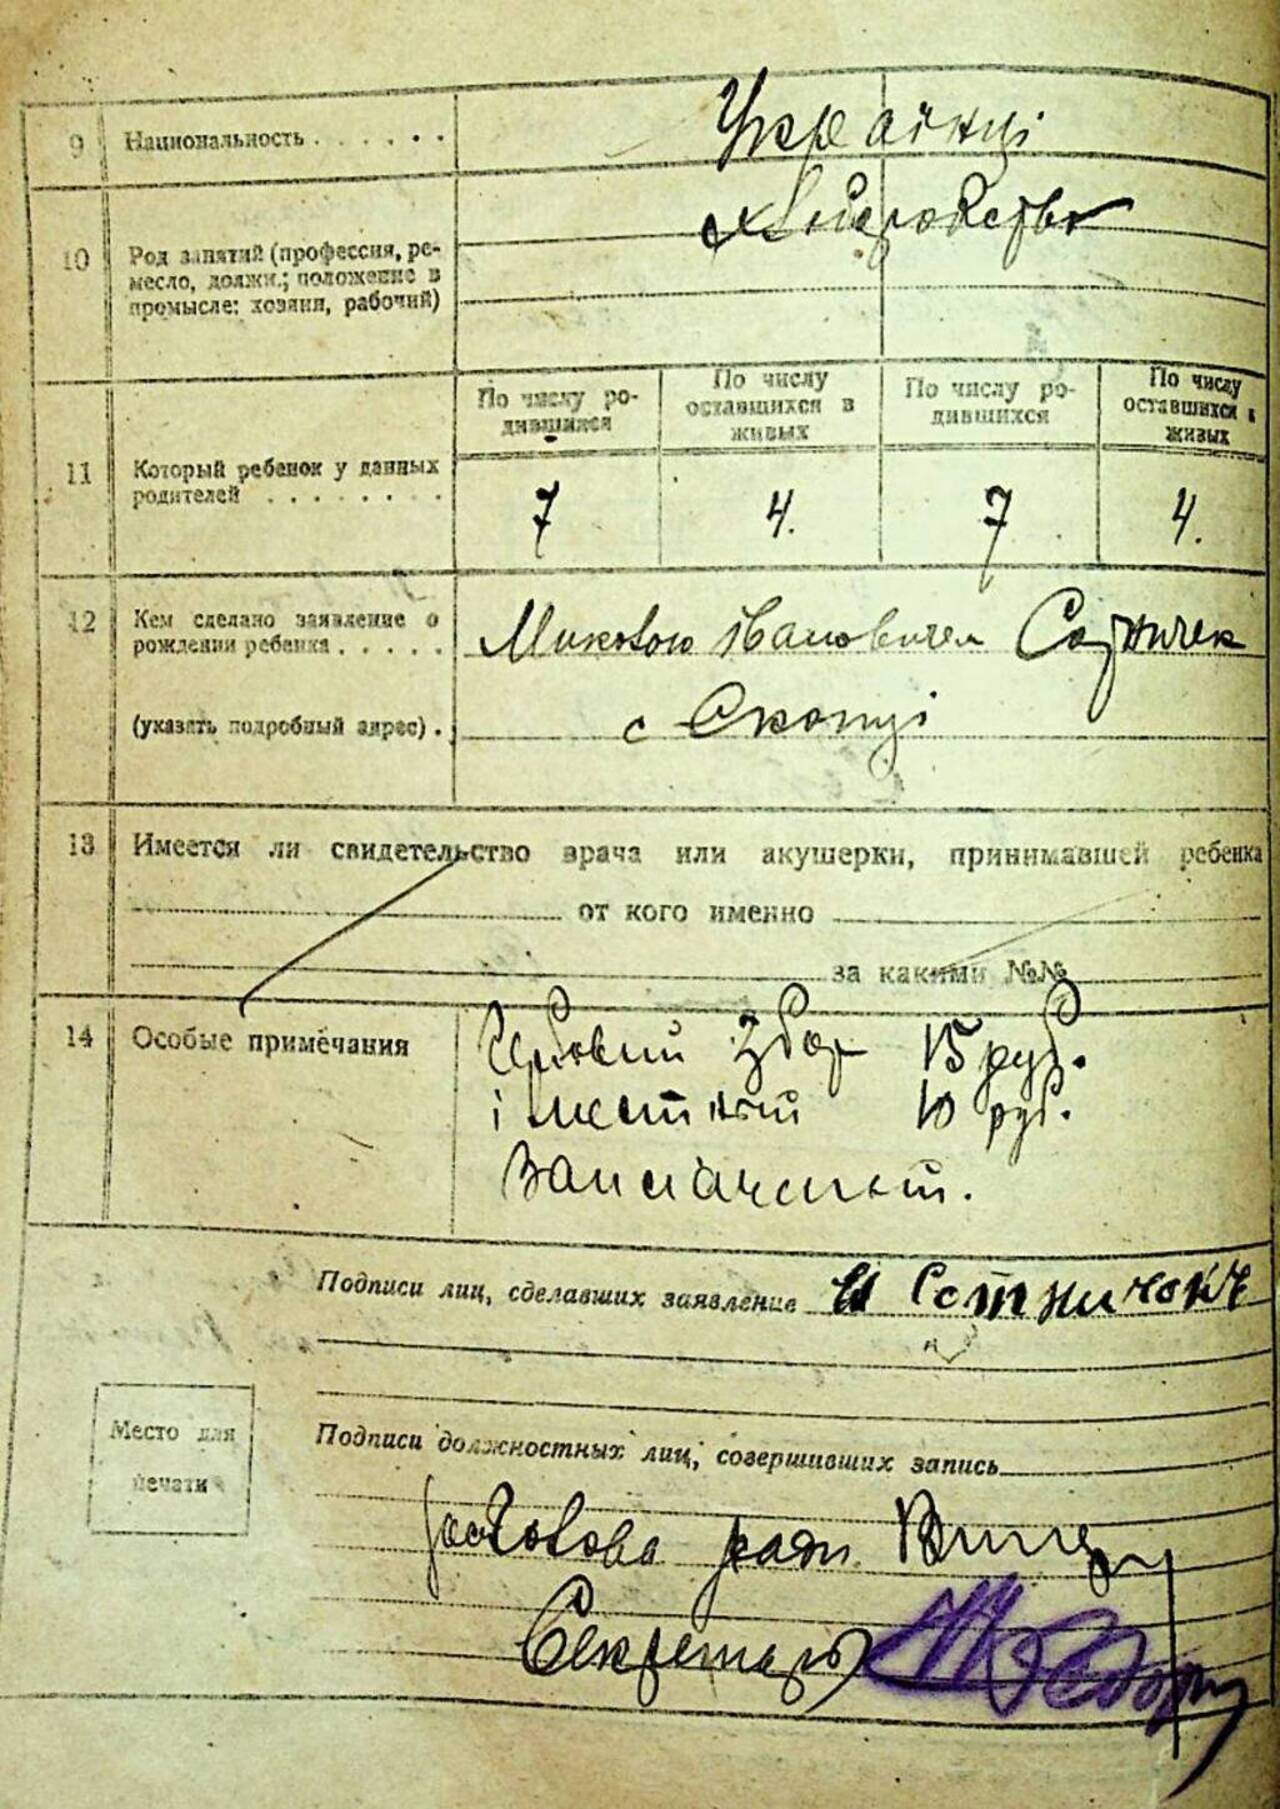 9 Национальность . . . . . . Українці
10 Род занятий (профессия, ре-
месло, должн.; положение в
промысле: хозяин, рабочий)
хліборобство
По числу ро-
дившихся
По числу
оставшихся в
живых
По числу ро-
дившихся
По числу
оставшихся в
живых
11 Который ребенок у данных
родителей . . . . . . . .
7 4. 7 4.
12 Кем сделано заявление о
рождении ребенка . . . . .
Миколою Івановичем
(указать подробный адрес) .
с
13 Имеется ли свидетельство врача или акушерки, принимавшей ребенка
от кого именно
за какими №№
14 Особые примечания
Гербовий збор 15 руб.
і местний 10 руб.
заплачений.
Подписи лиц, сделавших заявление
Место для
печати
Подписи должностных лиц, совершивших запись
Голова ради
Секретарь